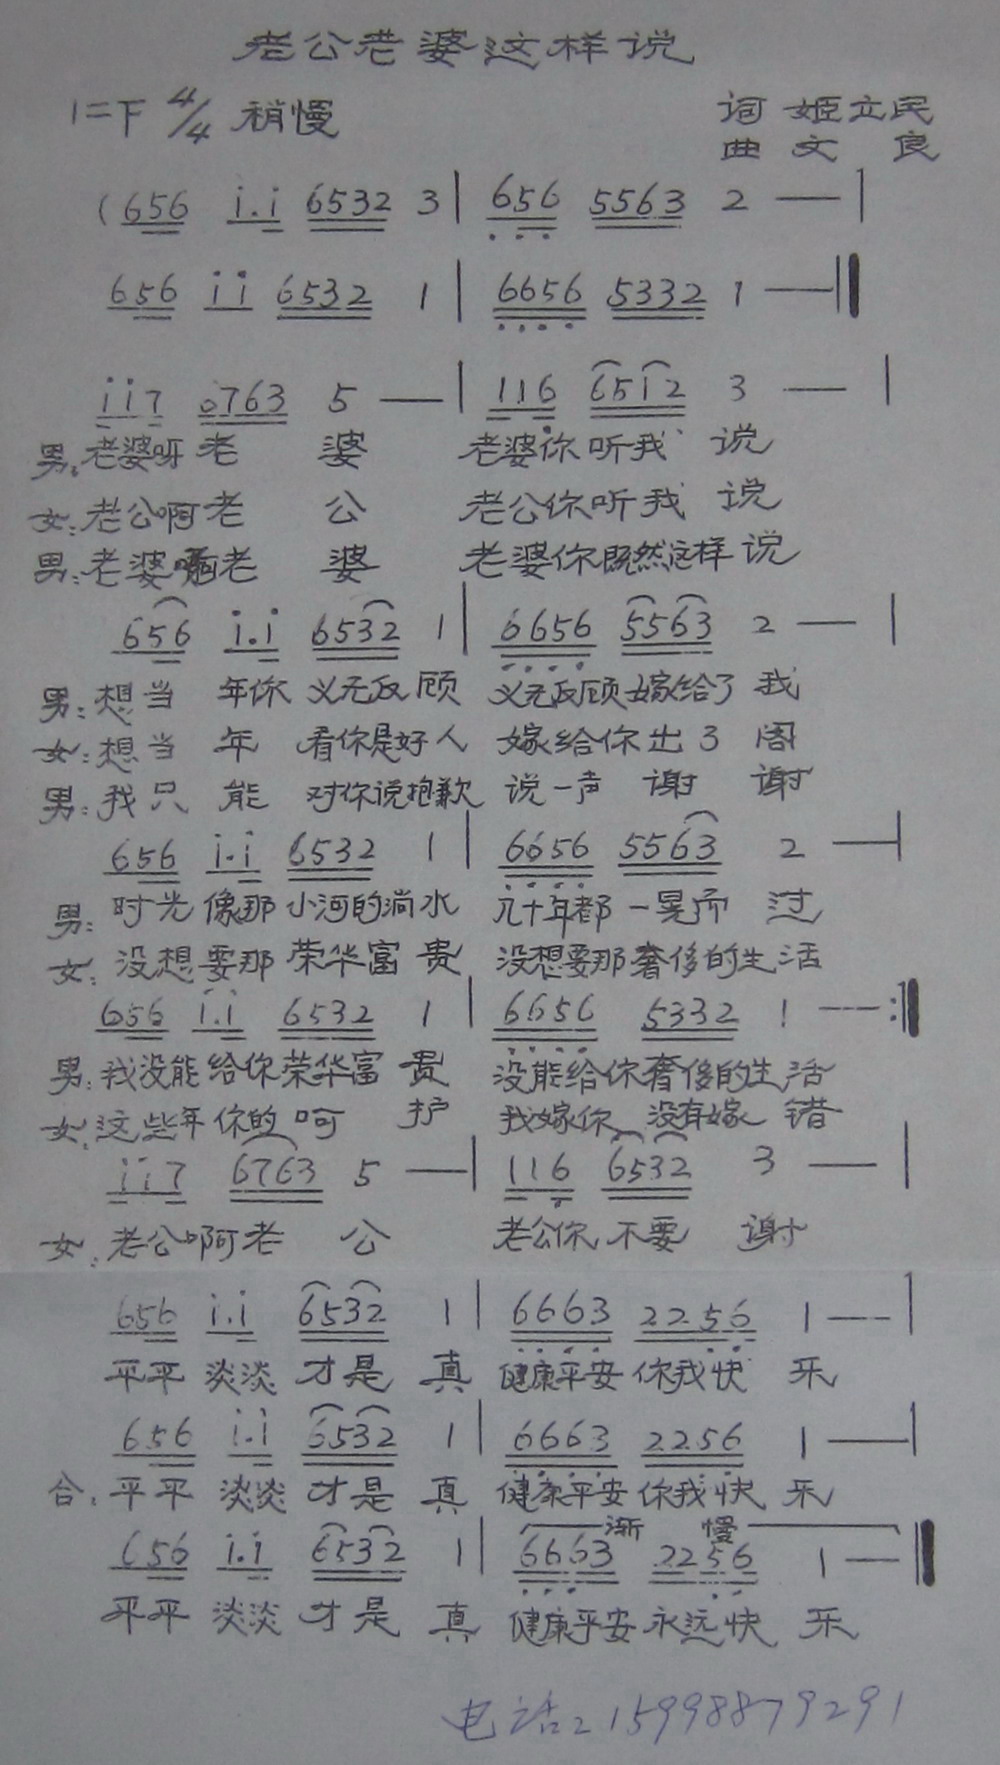 老公老婆这样说
1=下 4/4 稍慢 词 姬立民
曲 文 良
(656 i.i 6532 3 | 656 5563 2 — |
656 ii 6532 1 | 6656 5332 1 — ||
ii7 6763 5 — | 116 6512 3 — |
男:老婆呀老 婆 老婆你听我 说
女:老公啊老 公 老公你听我 说
男:老婆啊老 婆 老婆你既然这样说
656 i.i 6532 1 | 6656 5563 2 — |
男:想当 年你 义无反顾 义无反顾嫁给了 我
女:想当 年 看你是好人 嫁给你出了 阁
男:我只 能 对你说抱歉 说一声 谢 谢
656 i.i 6532 1 | 6656 5563 2 — |
男:时光像那 小河的淌水 几十年都 一晃而 过
女:没想要那 荣华富贵 没想要那奢侈的生活
656 i.i 6532 1 | 6656 5332 1 — :||
男:我没能给你荣华富 贵 没能给你奢侈的生活
女:这些年你的 呵 护 我嫁你 没有嫁 错
ii7 6763 5 — | 116 6532 3 — |
女:老公啊老 公 老公你 不要 谢
656 i.i 6532 1 | 6663 2256 1 — |
平平 淡淡 才是 真 健康平安 你我快 乐
656 i.i 6532 1 | 6663 2256 1 — |
合:平平 淡淡 才是 真 健康平安 你我快 乐
渐 慢
656 i.i 6532 1 | 6663 2256 1 — ||
平平 淡淡 才是 真 健康平安 永远快 乐
电话:15998879291